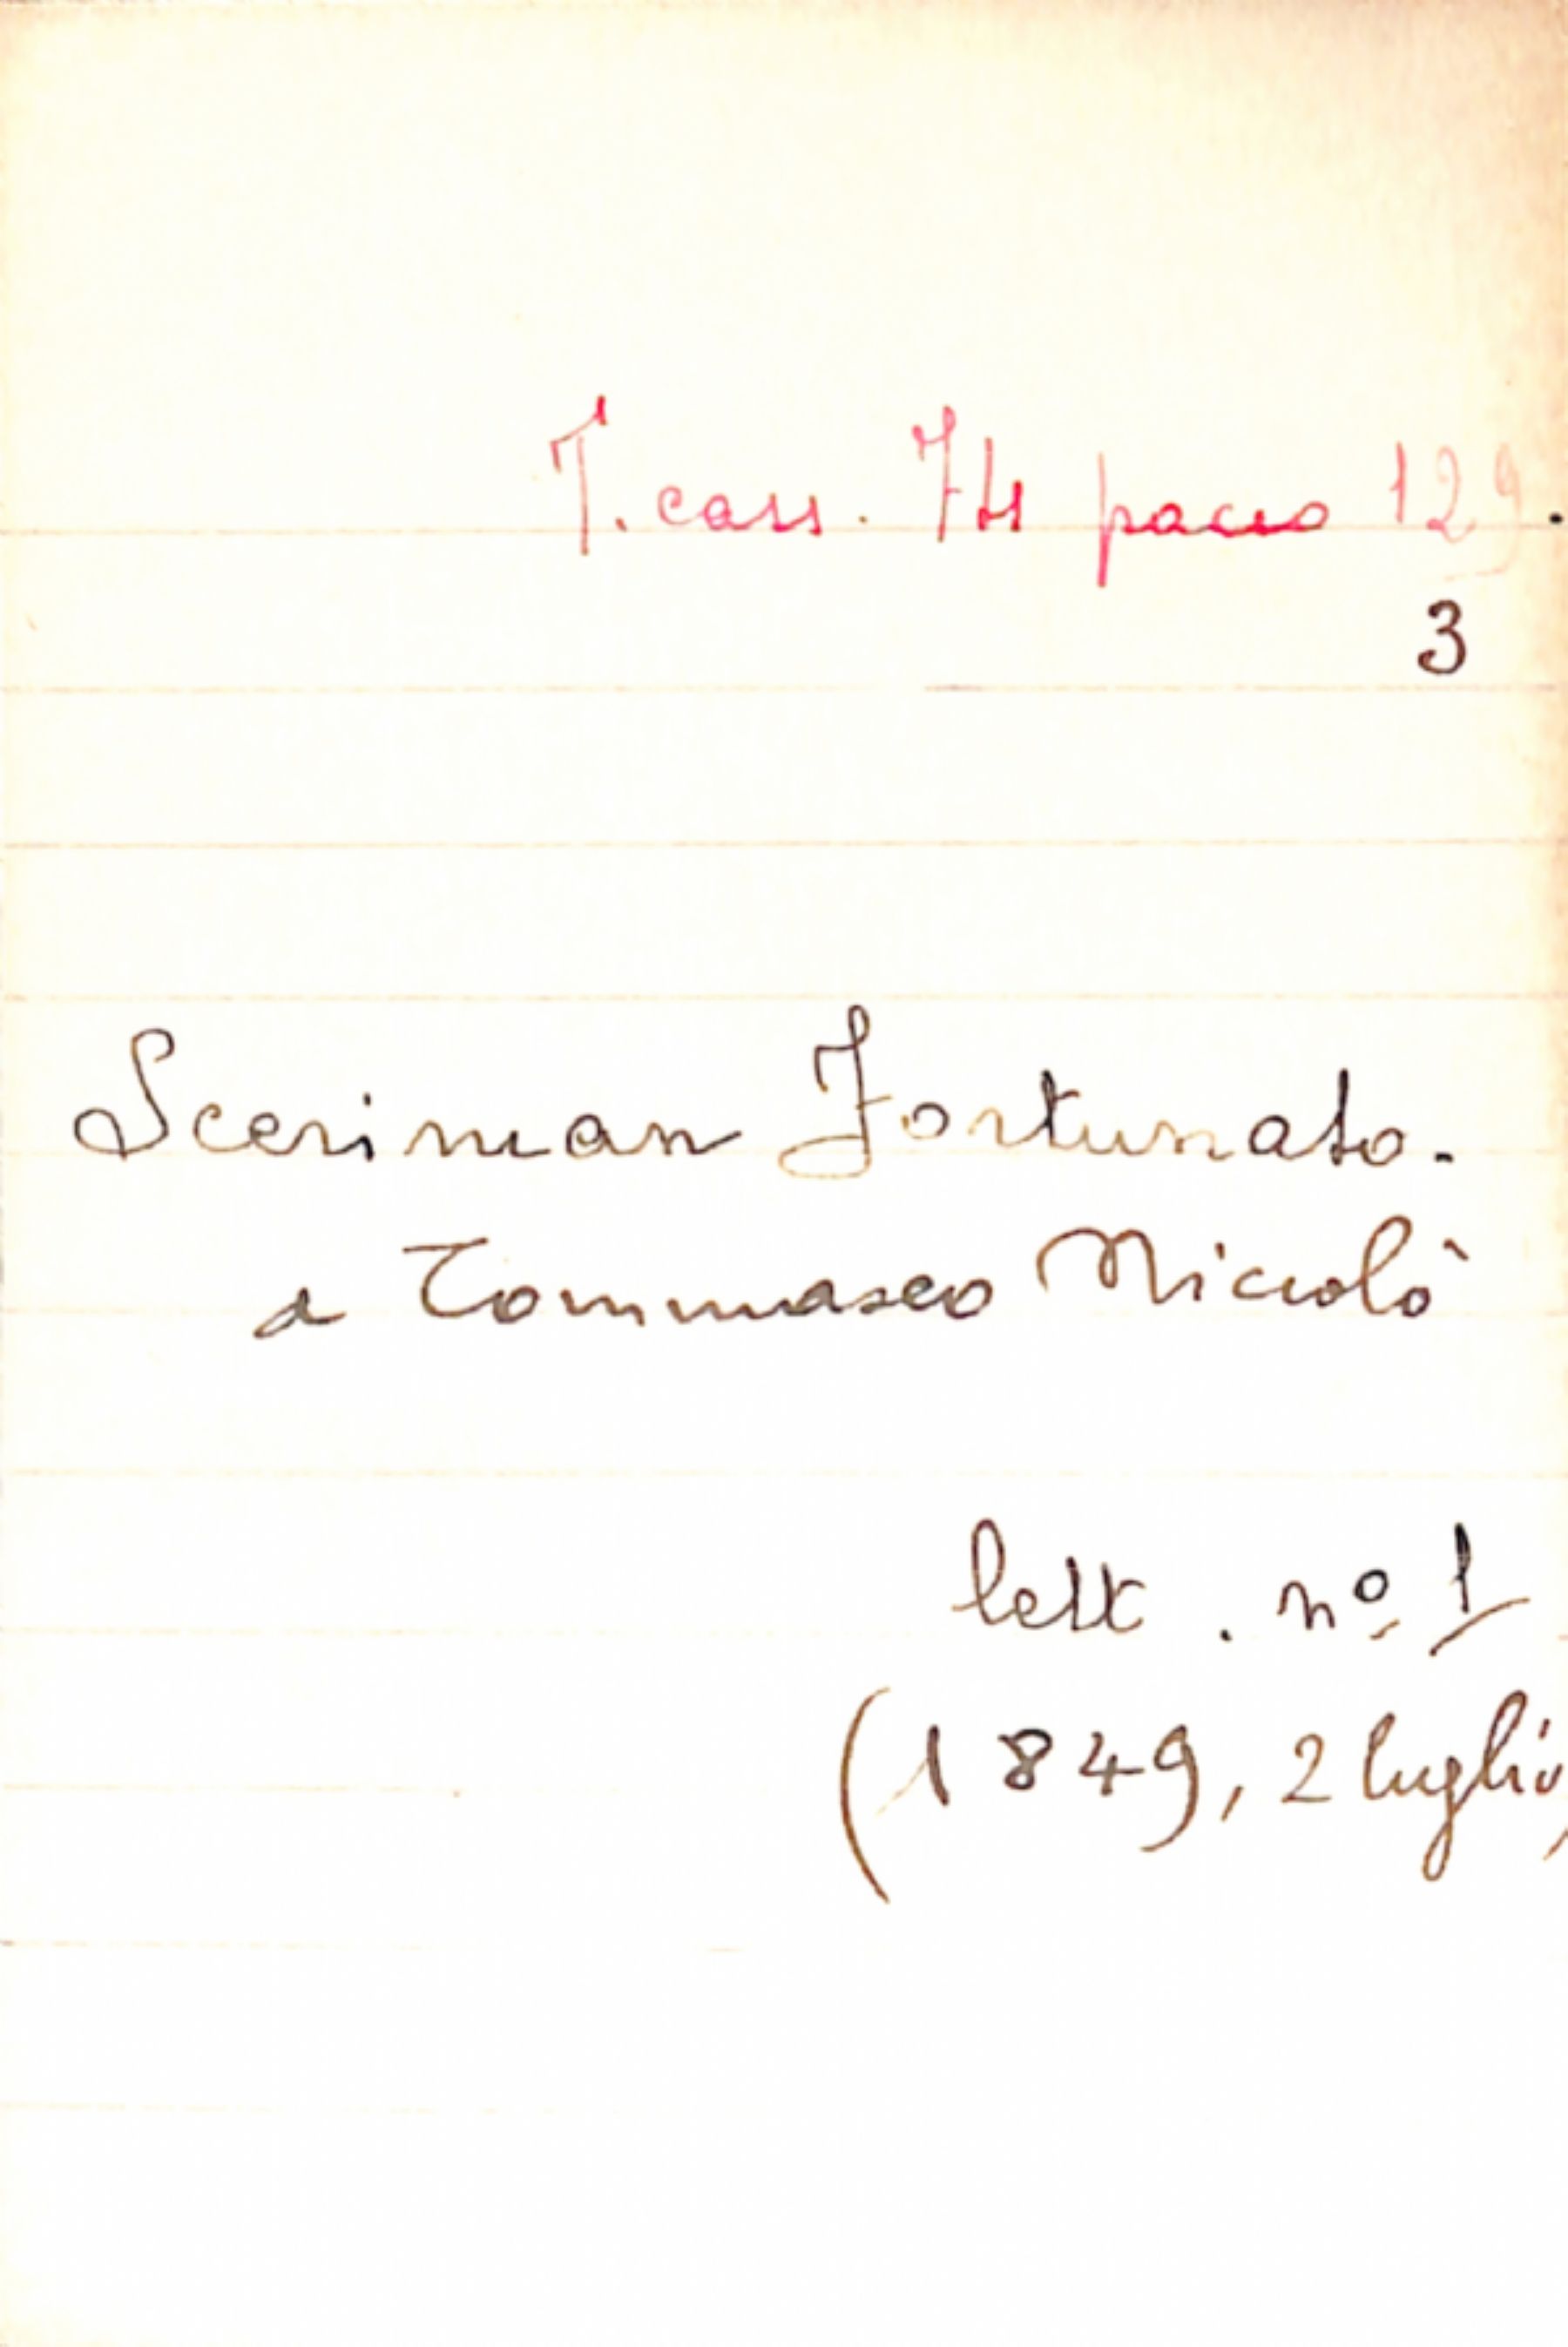 T. cass. 74 pacco 129.
3
Sceriman Fortunato.
a Tommaseo Niccolò
lett. nº 1
(1849, 2 luglio)